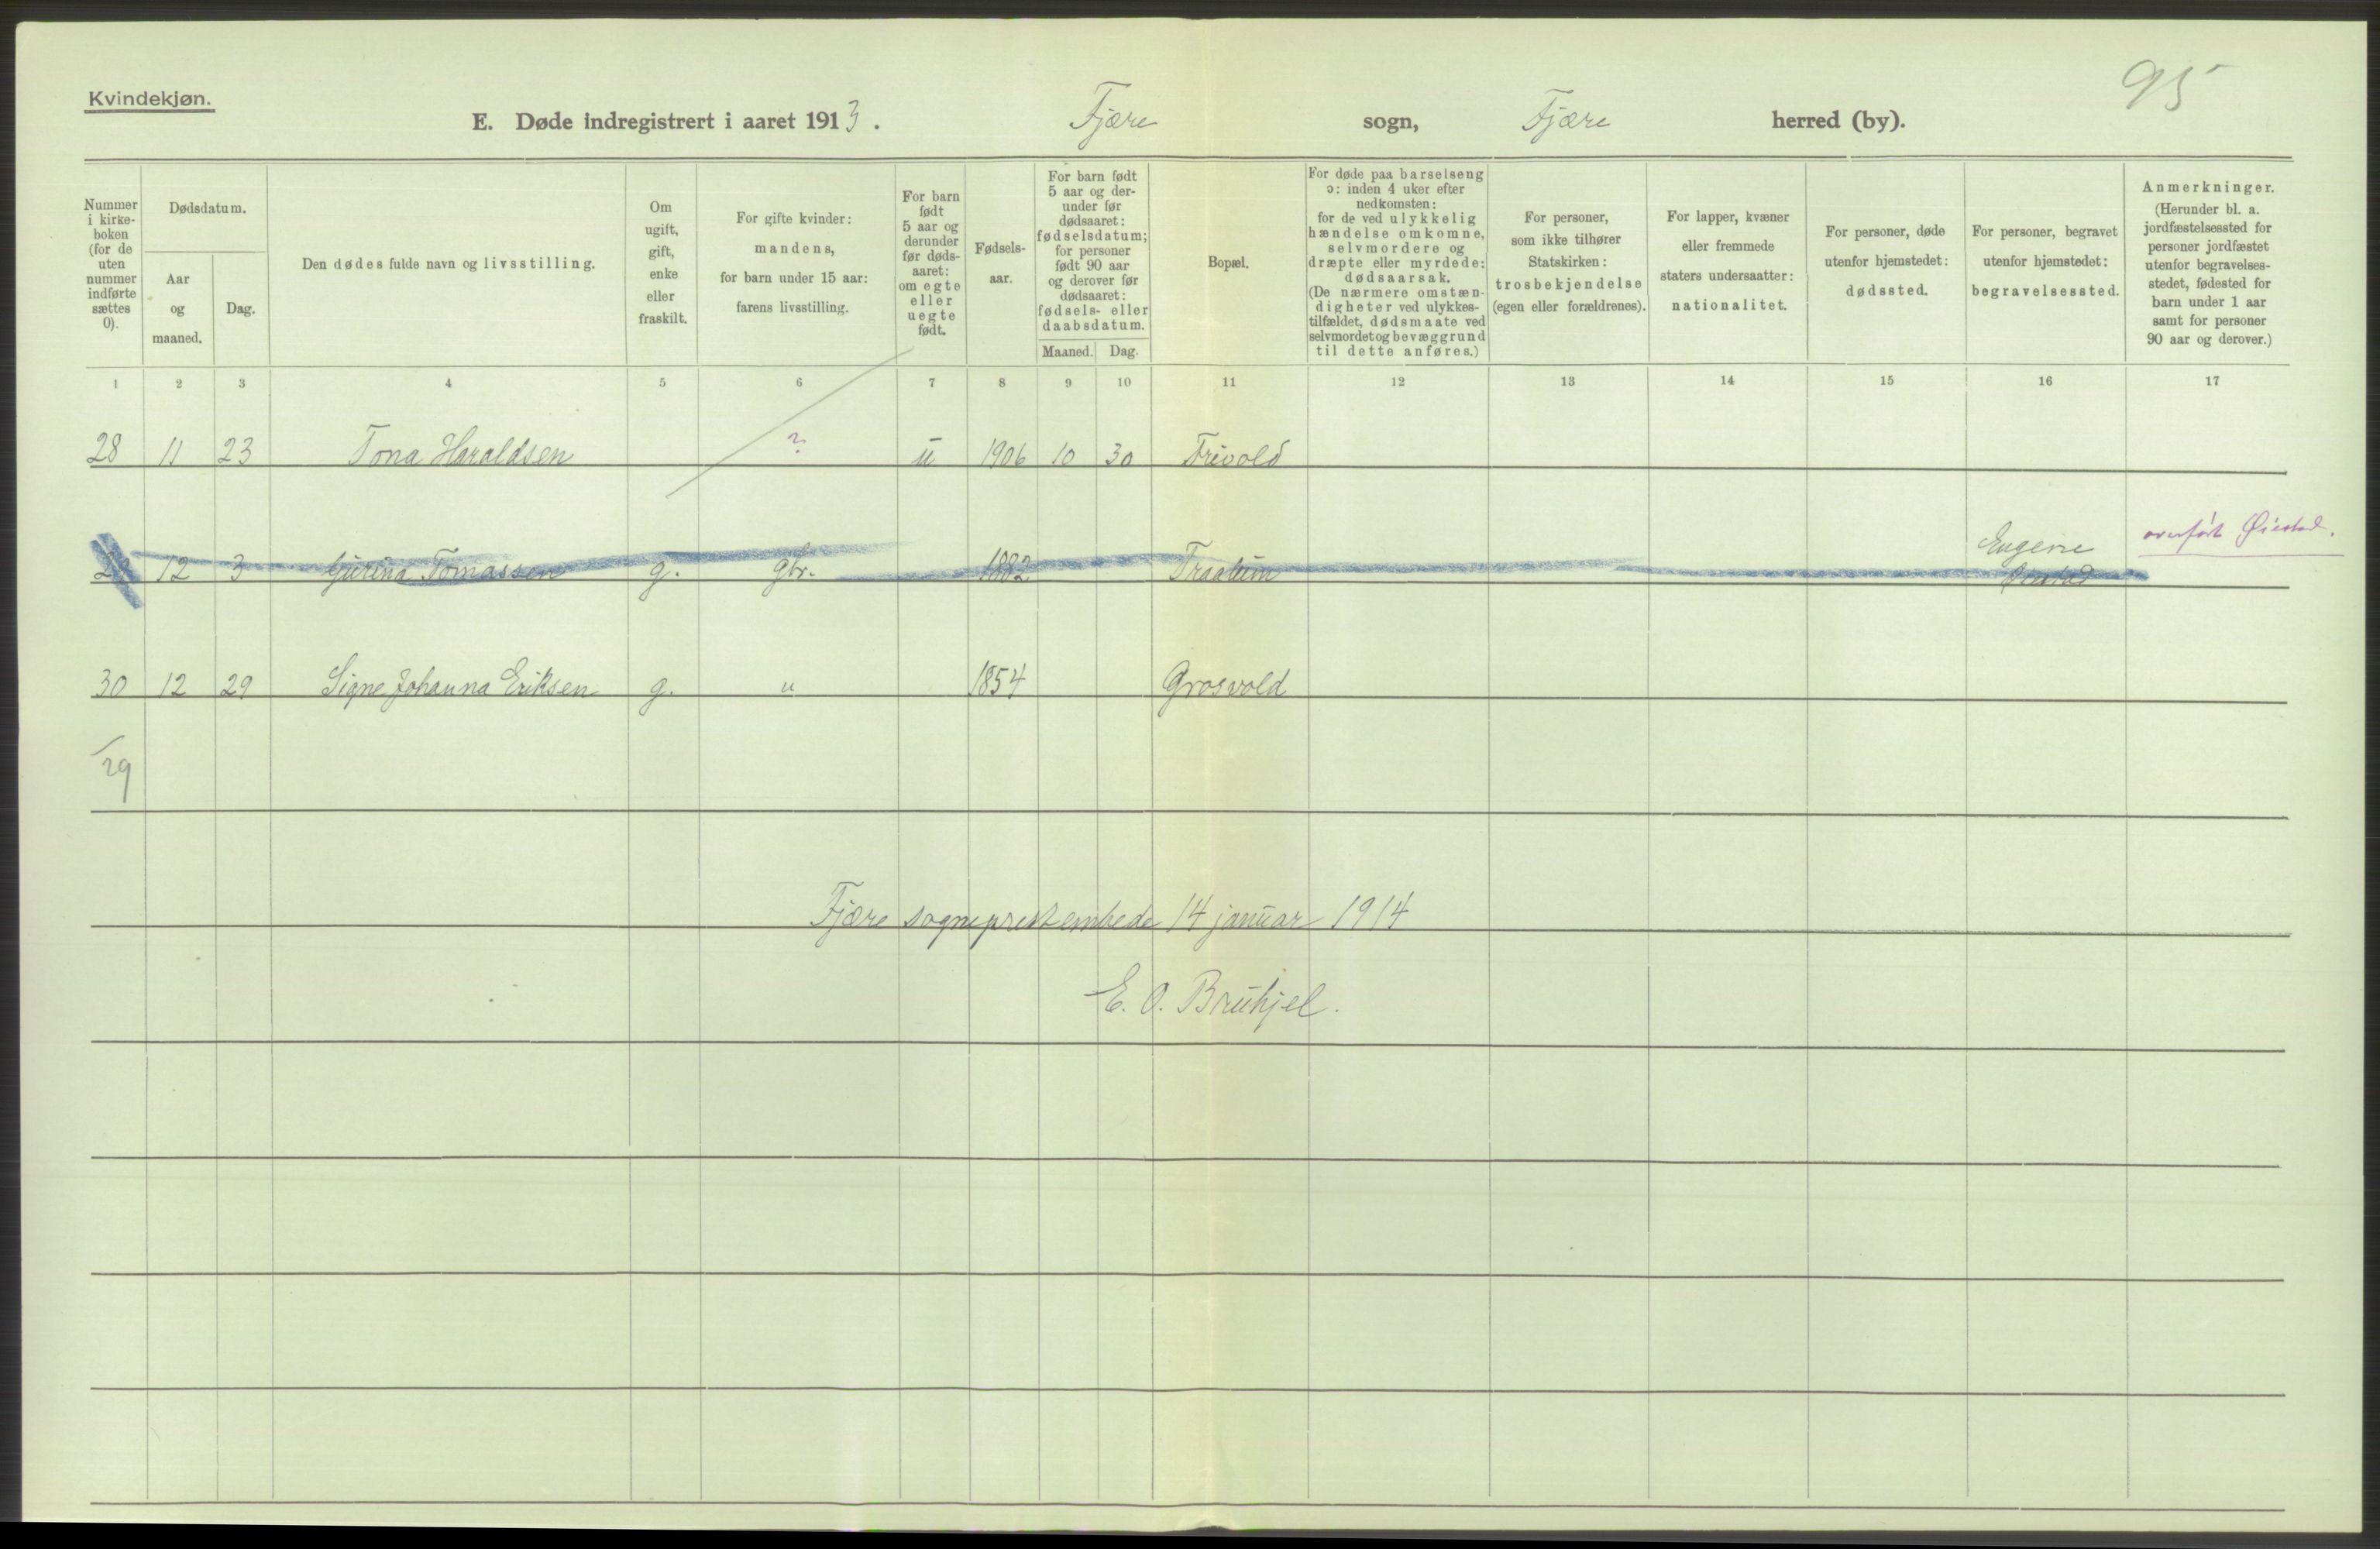 95
Kvindekjøn.
E. Døde indregistrert i aaret 1913. Fjære sogn, Fjære herred (by).
Nummer i kirke-
boken
(for de
uten
nummer
indførte
sættes
0).
Dødsdatum.
Aar
og
maaned.
Dag.
Den dødes fulde navn og livsstilling.
Om
ugift,
gift,
enke
eller
fraskilt.
For gifte kvinder:
mandens,
for barn under 15 aar:
farens livsstilling.
For barn
født
5 aar og
derunder
før døds-
aaret:
om egte
eller
uegte
født.
Fødsels-
aar.
For barn født
5 aar og der-
under før
dødsaaret:
fødselsdatum;
for personer
født 90 aar
og derover før
dødsaaret:
fødsels- eller
daabsdatum.
Maaned. Dag.
Bopæl.
For døde paa barselseng
ɔ: inden 4 uker efter
nedkomsten:
for de ved ulykkelig
hændelse omkomne,
selvmordere og
dræpte eller myrdede:
dødsaarsak.
(De nærmere omstæn-
digheter ved ulykkes-
tilfældet, dødsmaate ved
selvmordet og bevæggrund
til dette anføres.)
For personer,
som ikke tilhører
Statskirken:
trosbekjendelse
(egen eller forældrenes).
For lapper, kvæner
eller fremmede
staters undersaatter:
nationalitet.
For personer, døde
utenfor hjemstedet:
dødssted.
For personer, begravet
utenfor hjemstedet:
begravelsessted.
Anmerkninger.
(Herunder bl. a.
jordfæstelsessted for
personer jordfæstet
utenfor begravelses-
stedet, fødested for
barn under 1 aar
samt for personer
90 aar og derover.)
1 2 3 4 5 6 7 8 9 10 11 12 13 14 15 16 17
28 11 23 Tona Haraldsen ? u 1906 10 30 Frivold
12 3 Gurina Tomassen g. gbr. 1882 Eugene
Øiestad
overført Øiestad.
30 12 29 Signe Johanna Eriksen g. " 1854 Grosvold
/29
Fjære sogneprestembede 14 januar 1914
E. O. Bruhjel.